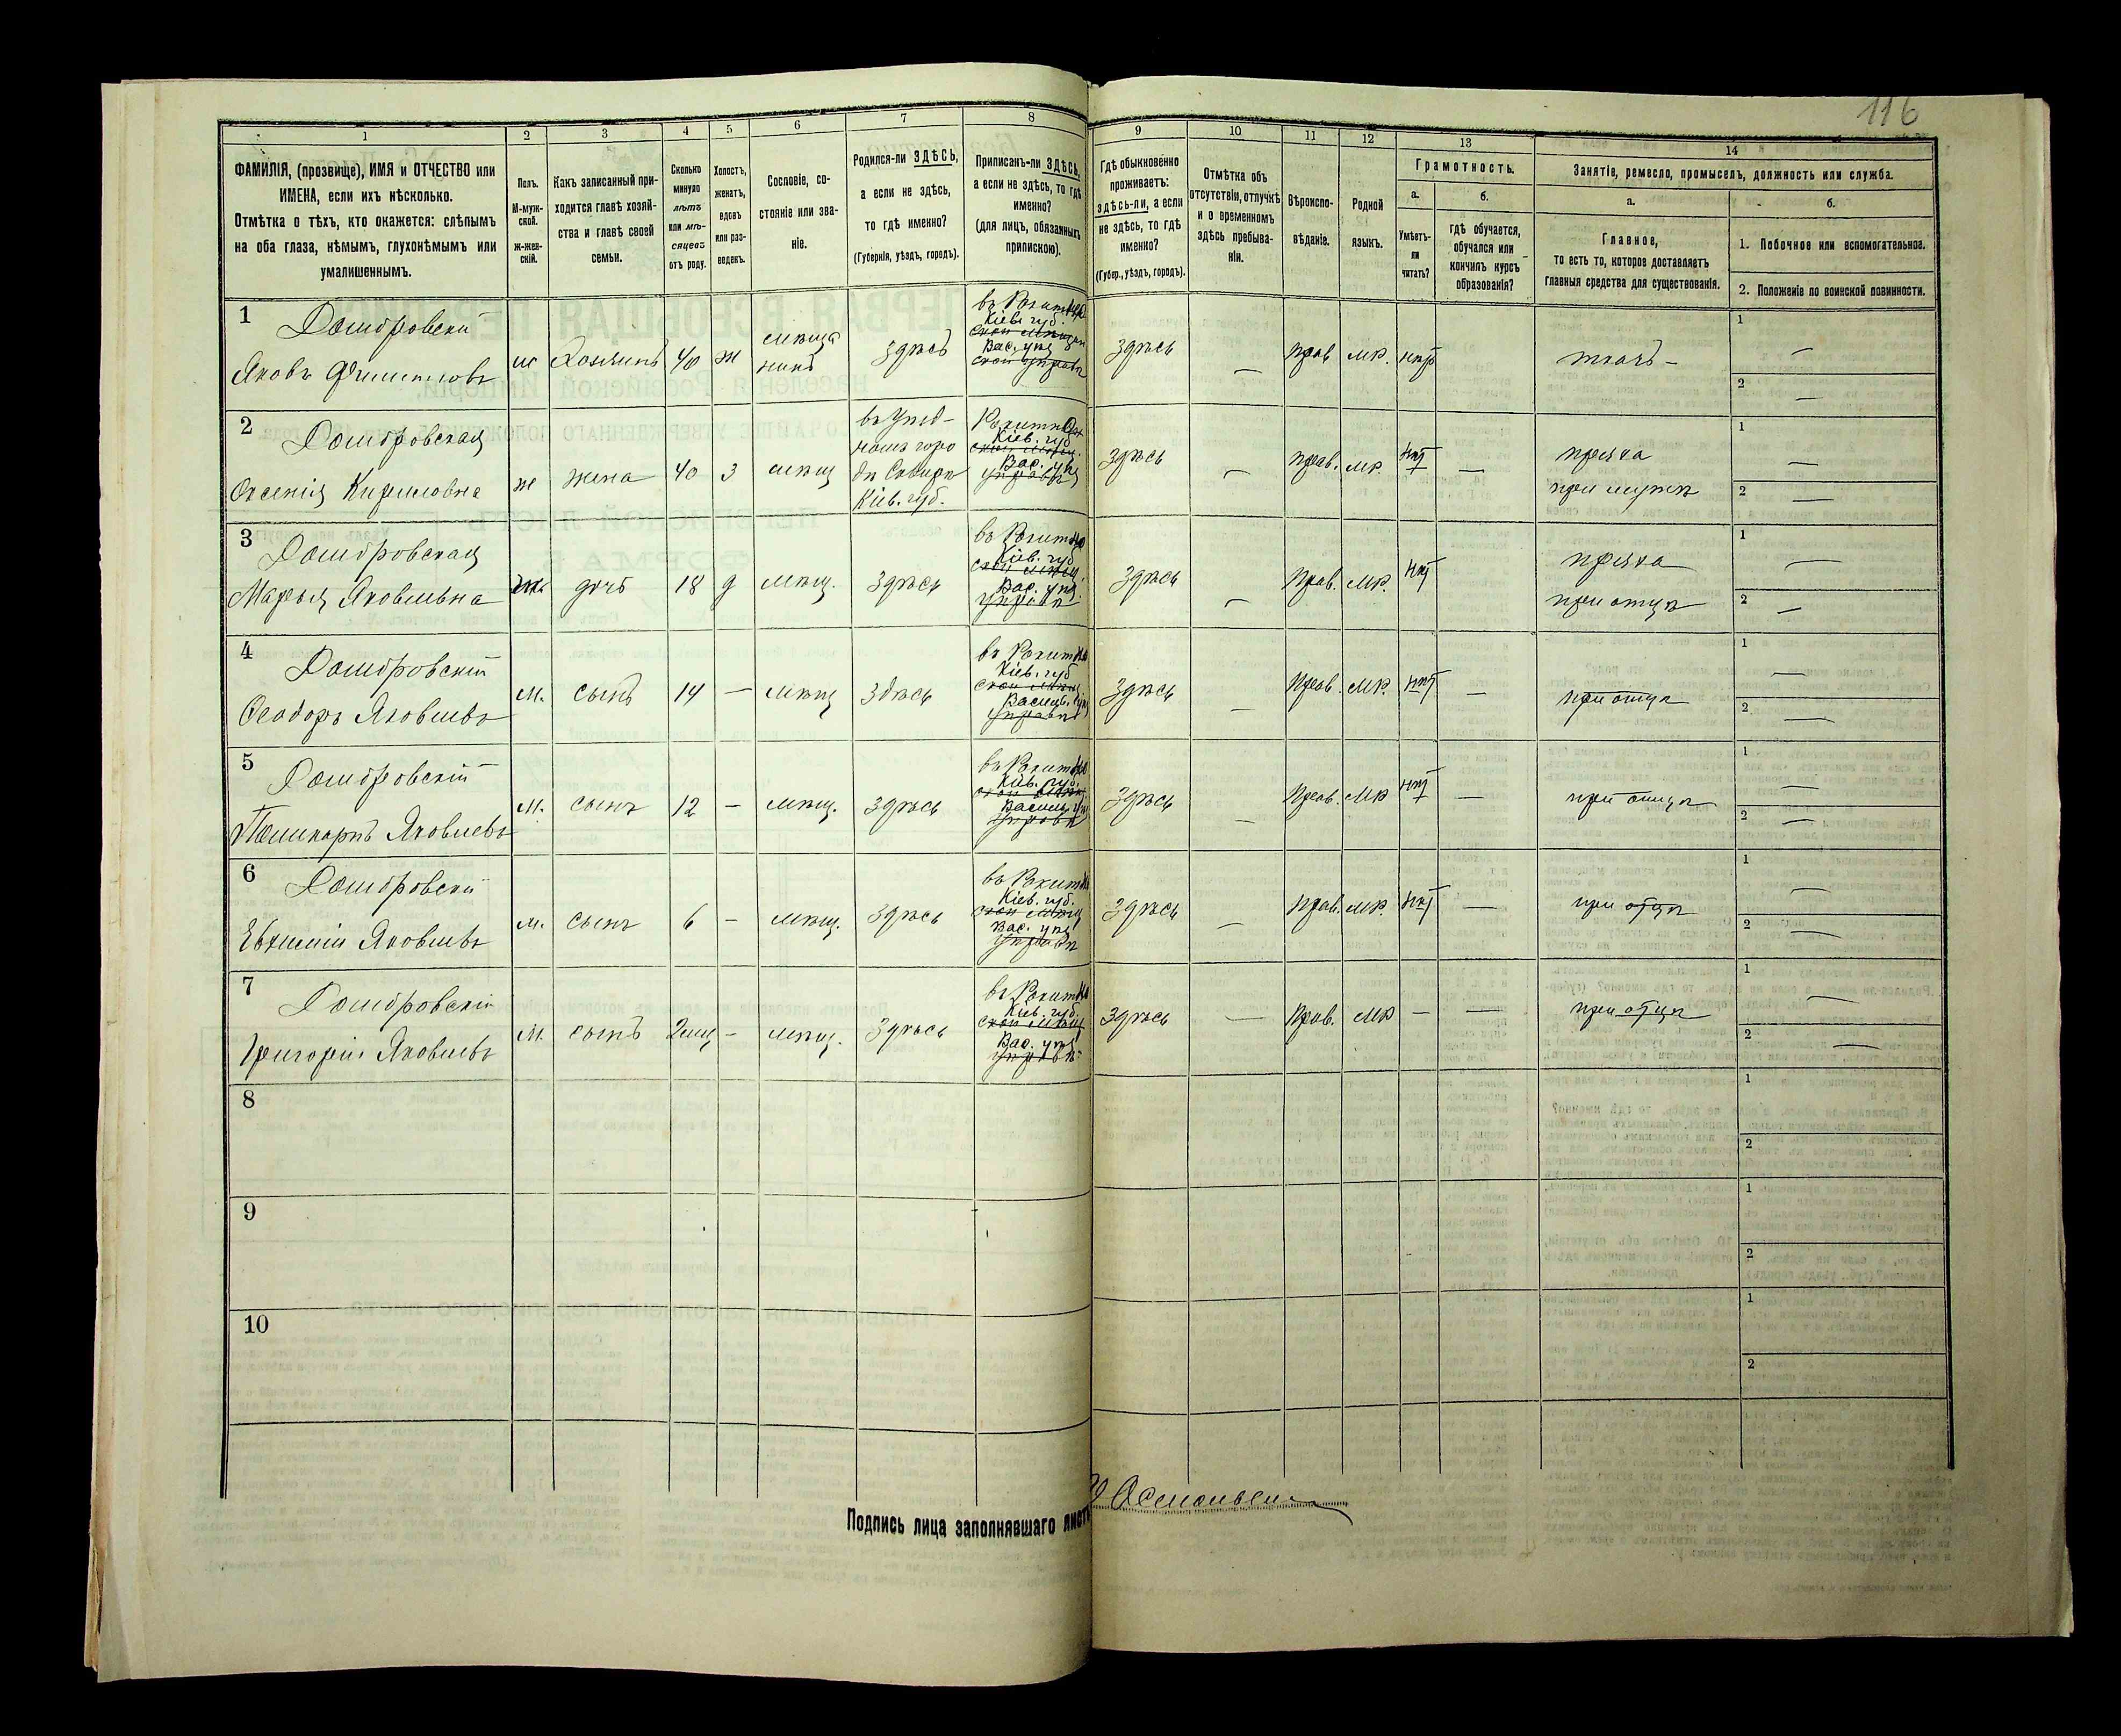 116
1
2
3
4
5
6
7
8
9
10
11
12
13
14
ФАМИЛІЯ, (прозвище), ИМЯ и ОТЧЕСТВО или
ИМЕНА, если ихъ нѣсколько.
Отмѣтка о тѣхъ, кто окажется: слѣпымъ
на оба глаза, нѣмымъ, глухонѣмымъ или
умалишеннымъ.
Полъ.
М-муж-
ской.
ж-жен-
скій.
Какъ записанный при-
ходится главѣ хозяй-
ства и главѣ своей
семьи.
Сколько
минуло
лѣтъ
или мѣ-
сяцевъ
отъ роду.
Холостъ,
женатъ,
вдовъ
или раз-
веденъ.
Сословіе, со-
стояніе или зва-
ніе.
Родился-ли ЗДѢСЬ,
а если не здѣсь,
то гдѣ именно?
(Губернія, уѣздъ, городъ).
Приписанъ-ли ЗДѢСЬ,
а если не здѣсь, то гдѣ
именно?
(для лицъ, обязанныхъ
припискою).
Гдѣ обыкновенно
проживаетъ:
здѣсь-ли, а если
не здѣсь, то гдѣ
именно?
(Губер., уѣздъ, городъ).
Отмѣтка объ
отсутствіи, отлучкѣ
и о временномъ
здѣсь пребыва-
ніи.
Вѣроиспо-
вѣданіе.
Родной
языкъ.
Грамотность.
а.
Умѣетъ-
ли
читать?
б.
гдѣ обучается,
обучался или
кончилъ курсъ
образованія?
Занятіе, ремесло, промыселъ, должность или служба.
а.
Главное,
то есть то, которое доставляетъ
главныя средства для существованія.
б.
1. Побочное или вспомогательное.
2. Положеніе по воинской повинности.
1
Домбровскій
Яковъ Филиповъ
м Хозяинъ 40 ж
мѣща
нинъ
здѣсь
Кіев. губ.
Вас. уѣз
здѣсь — прав мр. нѣтъ ткачъ —
1 —
2 —
2
Домбровская
Оксенія Кириловна
ж жена 40 з мѣщ
въ уѣзд-
номъ горо
дѣ Сквирѣ
Кіев. губ.
Кіев. губ
Вас. уѣз
здѣсь — прав. мр. нѣт —
пряха
при мужѣ
1 —
2 —
3
Домбровская
Марья Яковлевна
жен дочь 18 д мѣщ. здѣсь
Кіев. губ
Вас. уѣз.
здѣсь — Прав. мр. нѣт
пряха
при отцѣ
1 —
2 —
4
Домбровскій
Феодоръ Яковлевъ
м. сынъ 14 — мѣщ здѣсь
Кіев. губ
здѣсь — Прав. мр. нѣт — при отцѣ
1 —
2 —
5
Домбровскій
Поликарпъ Яковлевъ
м. сынъ 12 — мѣщ. здѣсь
Кіев. губ.
здѣсь — Прав. мр нѣт — при отцѣ
1 —
2 —
6
Домбровскій
Евфимій Яковлевъ
м. сынъ 6 — мѣщ. здѣсь
Кіев. губ.
Вас. уѣз
здѣсь — Прав. мр. нѣт — при отцѣ
1 —
2 —
7
Домбровскій
Григорій Яковлевъ
м. сынъ 2 мѣц — мѣщ. здѣсь
Кіев. губ.
Вас. уѣз
здѣсь — Прав. мр — — при отцѣ
1 —
2 —
8
1
2
9
1
2
10
1
2
Подпись лица заполнявшаго листъ